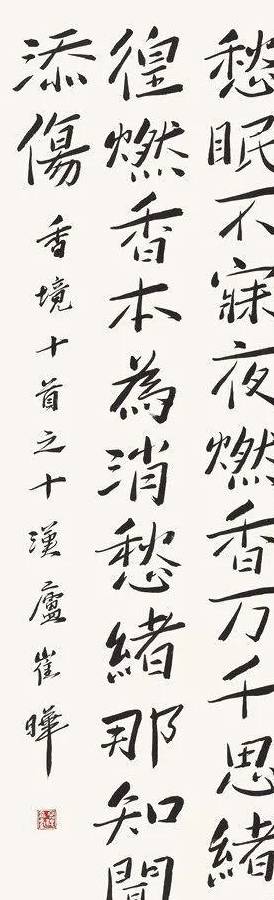 愁眠不寐夜燃香万千思緒
徨燃香本為消愁緒那知聞
添傷
香境十首之十漢廬崔曄